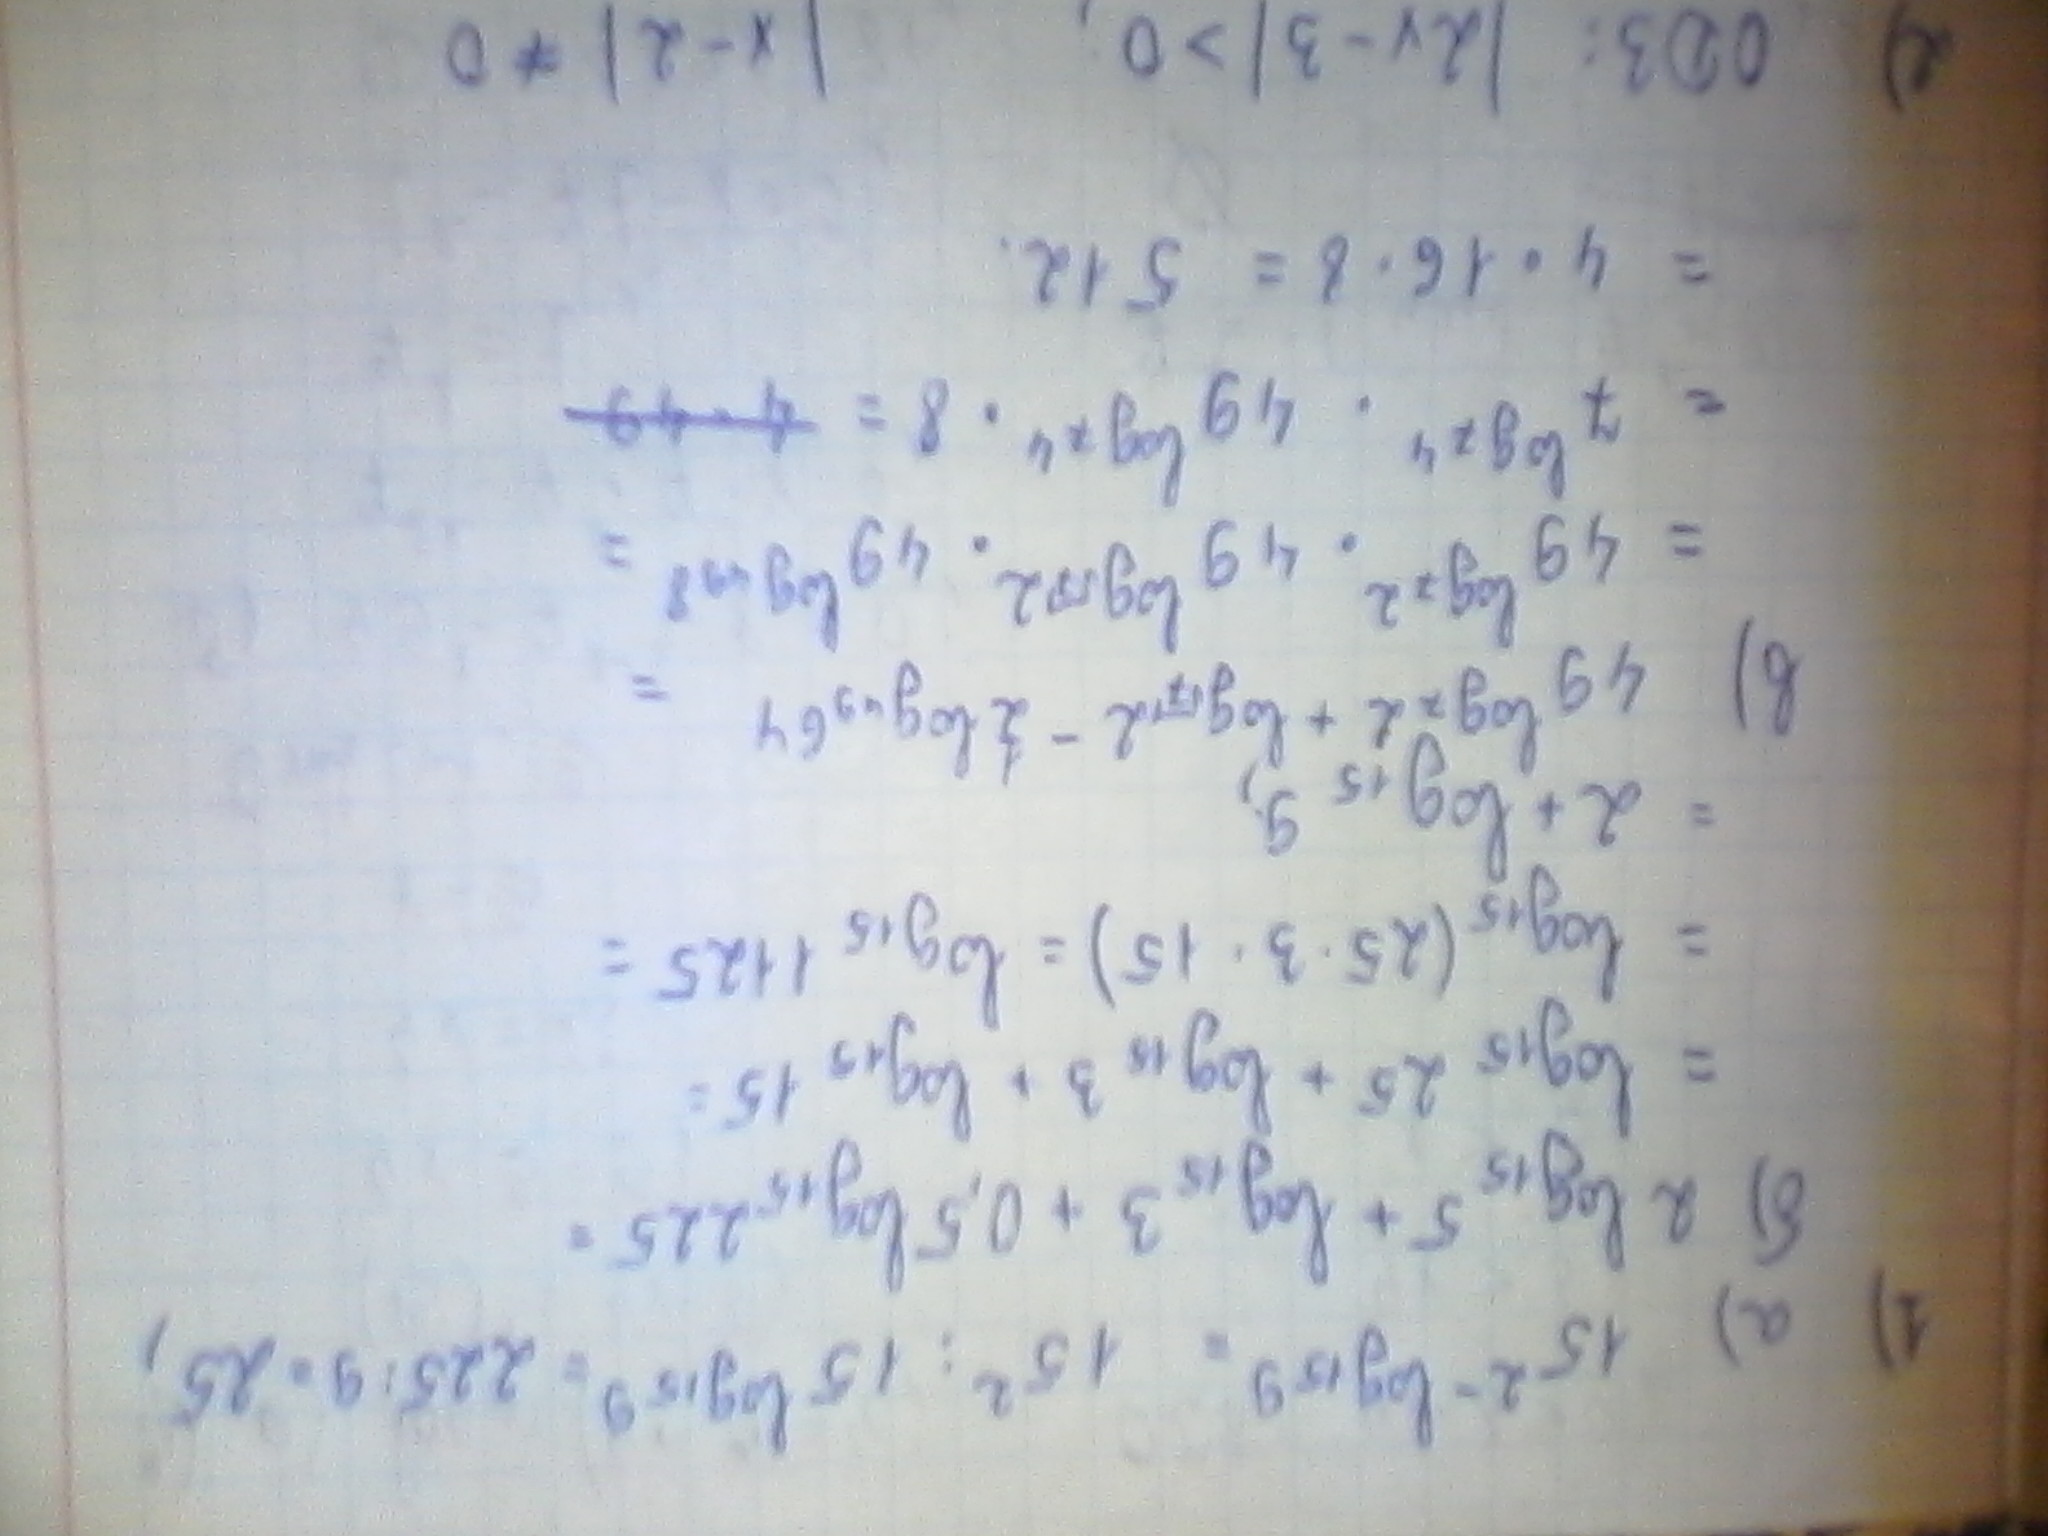 1) а) 15^2-log_15 9 = 15^2 : 15^log_15 9 = 225:9=25,
б) 2 log_15 5 + log_15 3 + 0,5 log_15 225 =
= log_15 25 + log_15 3 + log_15 15 =
= log_15 (25·3·15) = log_15 1125 =
= 2 + log_15 9;
в) 49^log_7 2 + log_√7 2 - 1/2 log_49 64 =
= 49^log_7 2 · 49^log_√7 2 · 49^log_49 8 =
= 7^log_7 4 · 49^log_7 4 · 8 = 4·49
= 4·16·8 = 512.
2) ОДЗ: |2x-3|>0; |x-2| ≠ 0